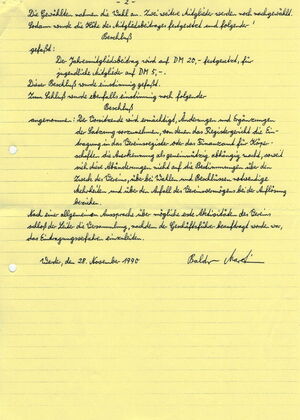 - 2 -
Die Gewählten nahmen die Wahl an. Zwei weitere Mitglieder werden noch nachgewählt.
Sodann wurde die Höhe des Mitgliedsbeitrages festgesetzt und folgender
Beschluß
gefaßt:
Der Jahresmitgliedsbeitrag wird auf DM 20,- festgesetzt, für
jugendliche Mitglieder auf DM 5,-.
Dieser Beschluß wurde einstimmig gefaßt.
Zum Schluß wurde ebenfalls einstimmig noch folgender
Beschluß
angenommen: Der Vorsitzende wird ermächtigt, Änderungen und Ergänzungen
der Satzung vorzunehmen, von denen das Registergericht die Ein-
tragung in das Vereinsregister oder das Finanzamt für Körper-
schaften die Anerkennung als gemeinnützig abhängig macht, soweit
sich diese Abänderungen nicht auf die Bestimmungen über den
Zweck des Vereins, über bei Wahlen und Beschlüssen notwendige
Mehrheiten und über den Anfall des Vereinsvermögens bei der Auflösung
beziehen.
Nach einer allgemeinen Aussprache über mögliche erste Aktivitäten des Vereins
schloß der Leiter die Versammlung, nachdem der Geschäftsführer beauftragt worden war,
das Eintragungsverfahren einzuleiten.
den 28. November 1990